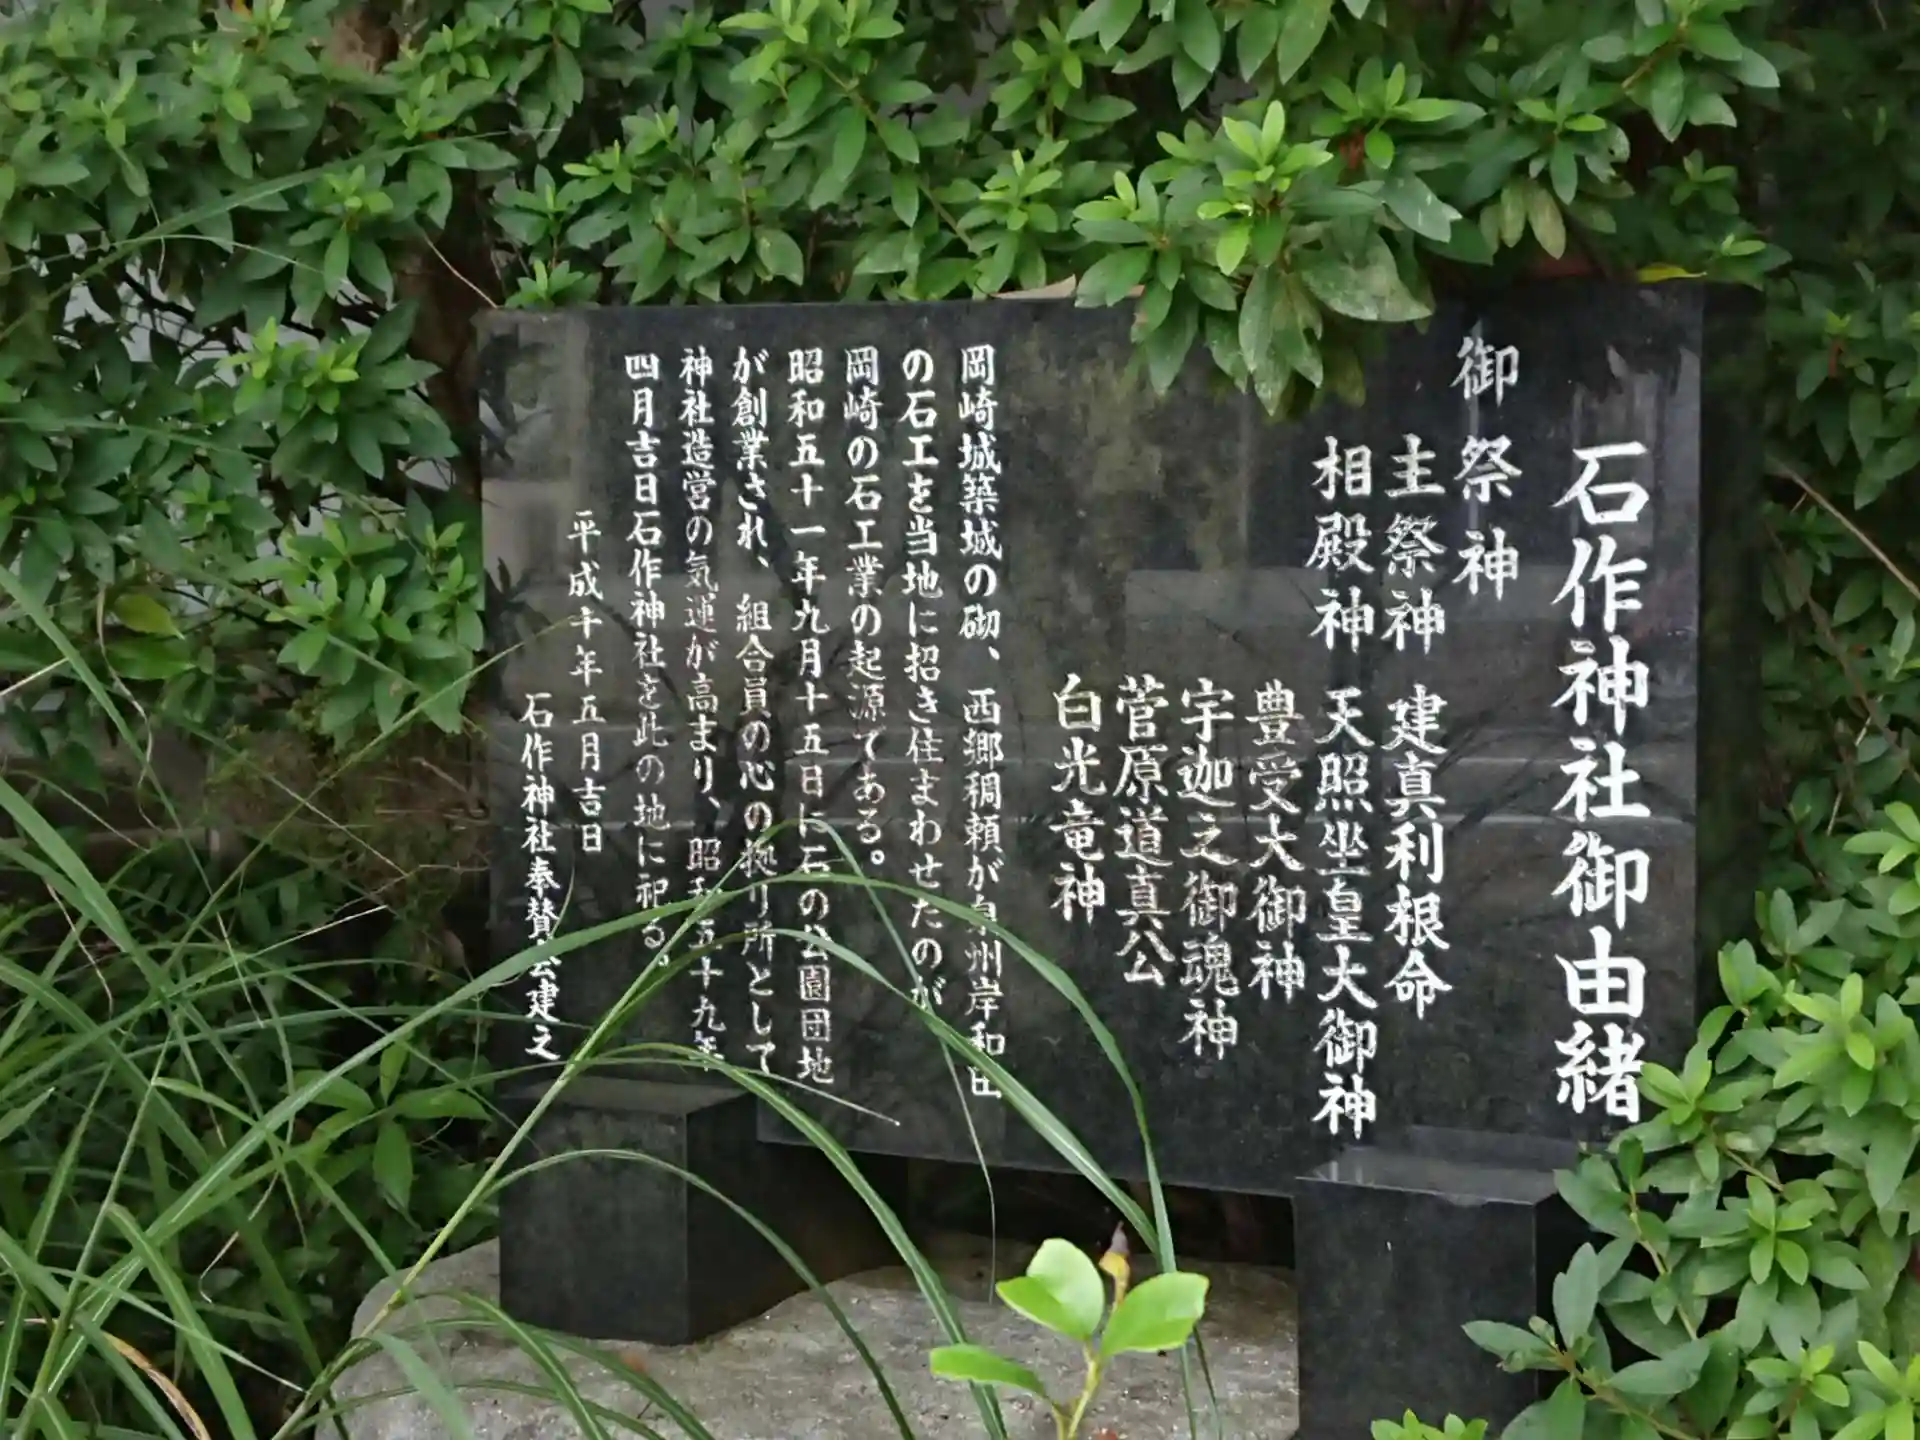 石作神社御由緒
御祭神
主祭神 建真利根命
相殿神 天照坐皇大御神
豊受大御神
宇迦之御魂神
菅原道真公
白光竜神
岡崎城築城の砌、西郷稠頼が泉州岸和田
の石工を当地に招き住まわせたのが
岡崎の石工業の起源である。
昭和五十一年九月十五日に石の公園団地
が創業され、組合員の心の拠り所として
神社造営の気運が高まり、昭和五十九年
四月吉日石作神社を此の地に祀る。
平成十年五月吉日
石作神社奉賛会建之